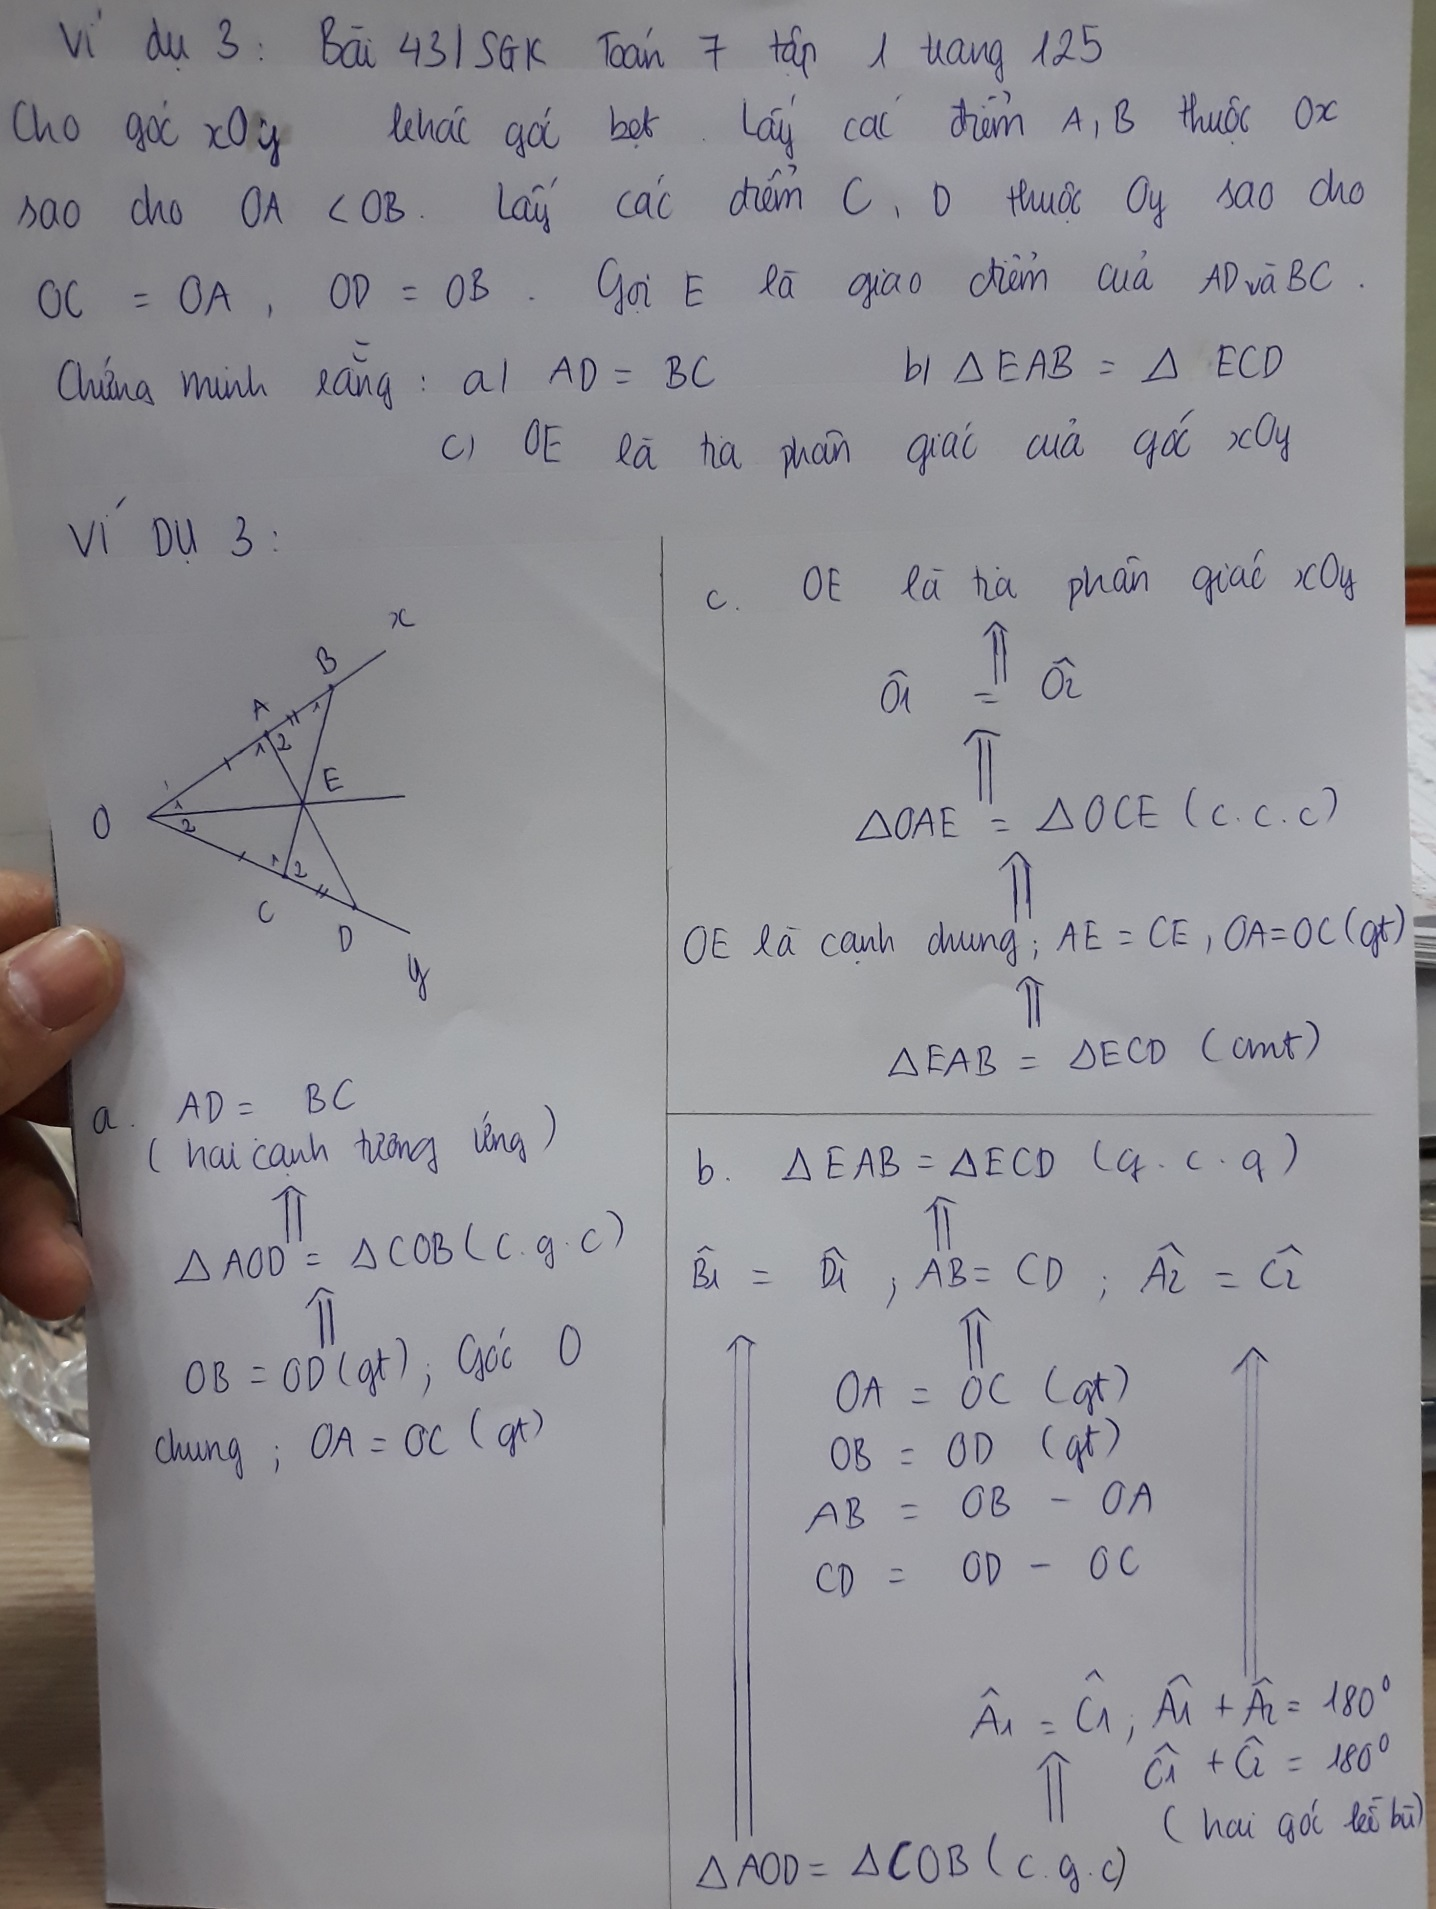 Ví dụ 3: Bài 43/SGK Toán 7 tập 1 trang 125
Cho góc xOy khác góc bẹt. Lấy các điểm A, B thuộc Ox
sao cho OA < OB. Lấy các điểm C, D thuộc Oy sao cho
OC = OA, OD = OB. Gọi E là giao điểm của AD và BC.
Chứng minh rằng: a/ AD = BC b/ ΔEAB = Δ ECD
c) OE là tia phân giác của góc xOy
VÍ DỤ 3:
x
B
A
1
1 2
E
O
1
2
1 2
C
D
y
a. AD = BC
(hai cạnh tương ứng)
⇑
ΔAOD = ΔCOB (c.g.c)
⇑
OB = OD (gt); Góc O
chung; OA = OC (gt)
c. OE là tia phân giác xOy
⇑
Ô1 = Ô2
⇑
ΔOAE = ΔOCE (c.c.c)
⇑
OE là cạnh chung; AE = CE, OA=OC (gt)
⇑
ΔEAB = ΔECD (cmt)
b. ΔEAB = ΔECD (g.c.g)
⇑
B̂1 = D̂1; AB = CD; Â2 = Ĉ2
⇑ ⇑ ⇑
OA = OC (gt)
OB = OD (gt)
AB = OB - OA
CD = OD - OC
Â1 = Ĉ1; Â1 + Â2 = 180°
⇑ Ĉ1 + Ĉ2 = 180°
(hai góc kề bù)
ΔAOD = ΔCOB (c.g.c)